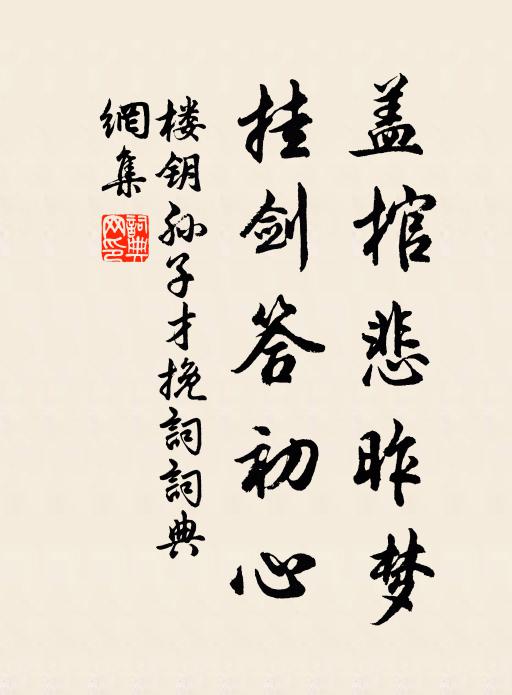 盖棺悲昨梦
挂剑答初心
楼钥孙子才挽词詞典
網集
詞典網印